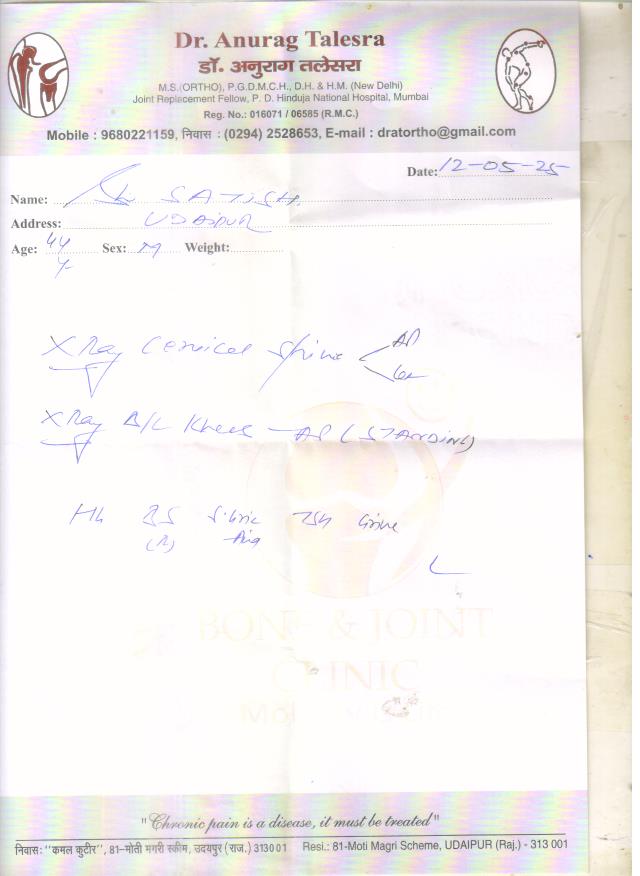 Dr. Anurag Talesra
डॉ. अनुराग तलेसरा
M.S.(ORTHO), P.G.D.M.C.H., D.H. & H.M. (New Delhi)
Joint Replacement Fellow, P. D. Hinduja National Hospital, Mumbai
Reg. No.: 016071 / 06585 (R.M.C.)
Mobile : 9680221159, निवास : (0294) 2528653, E-mail : dratortho@gmail.com
Date: 12-05-25
Name: SATISH
Address: UDAIPUR
Age: 44 Sex: M Weight:
X Ray Cervical Spine AP
X Ray B/L Knees - AP (STANDING)
Hb BS S.Uric TSH Urine
(R) Acid
BONE & JOINT
CLINIC
"Chronic pain is a disease, it must be treated"
निवास: "कमल कुटीर", 81-मोती मगरी स्कीम, उदयपुर (राज.) 313001 Resi.: 81-Moti Magri Scheme, UDAIPUR (Raj.) - 313 001